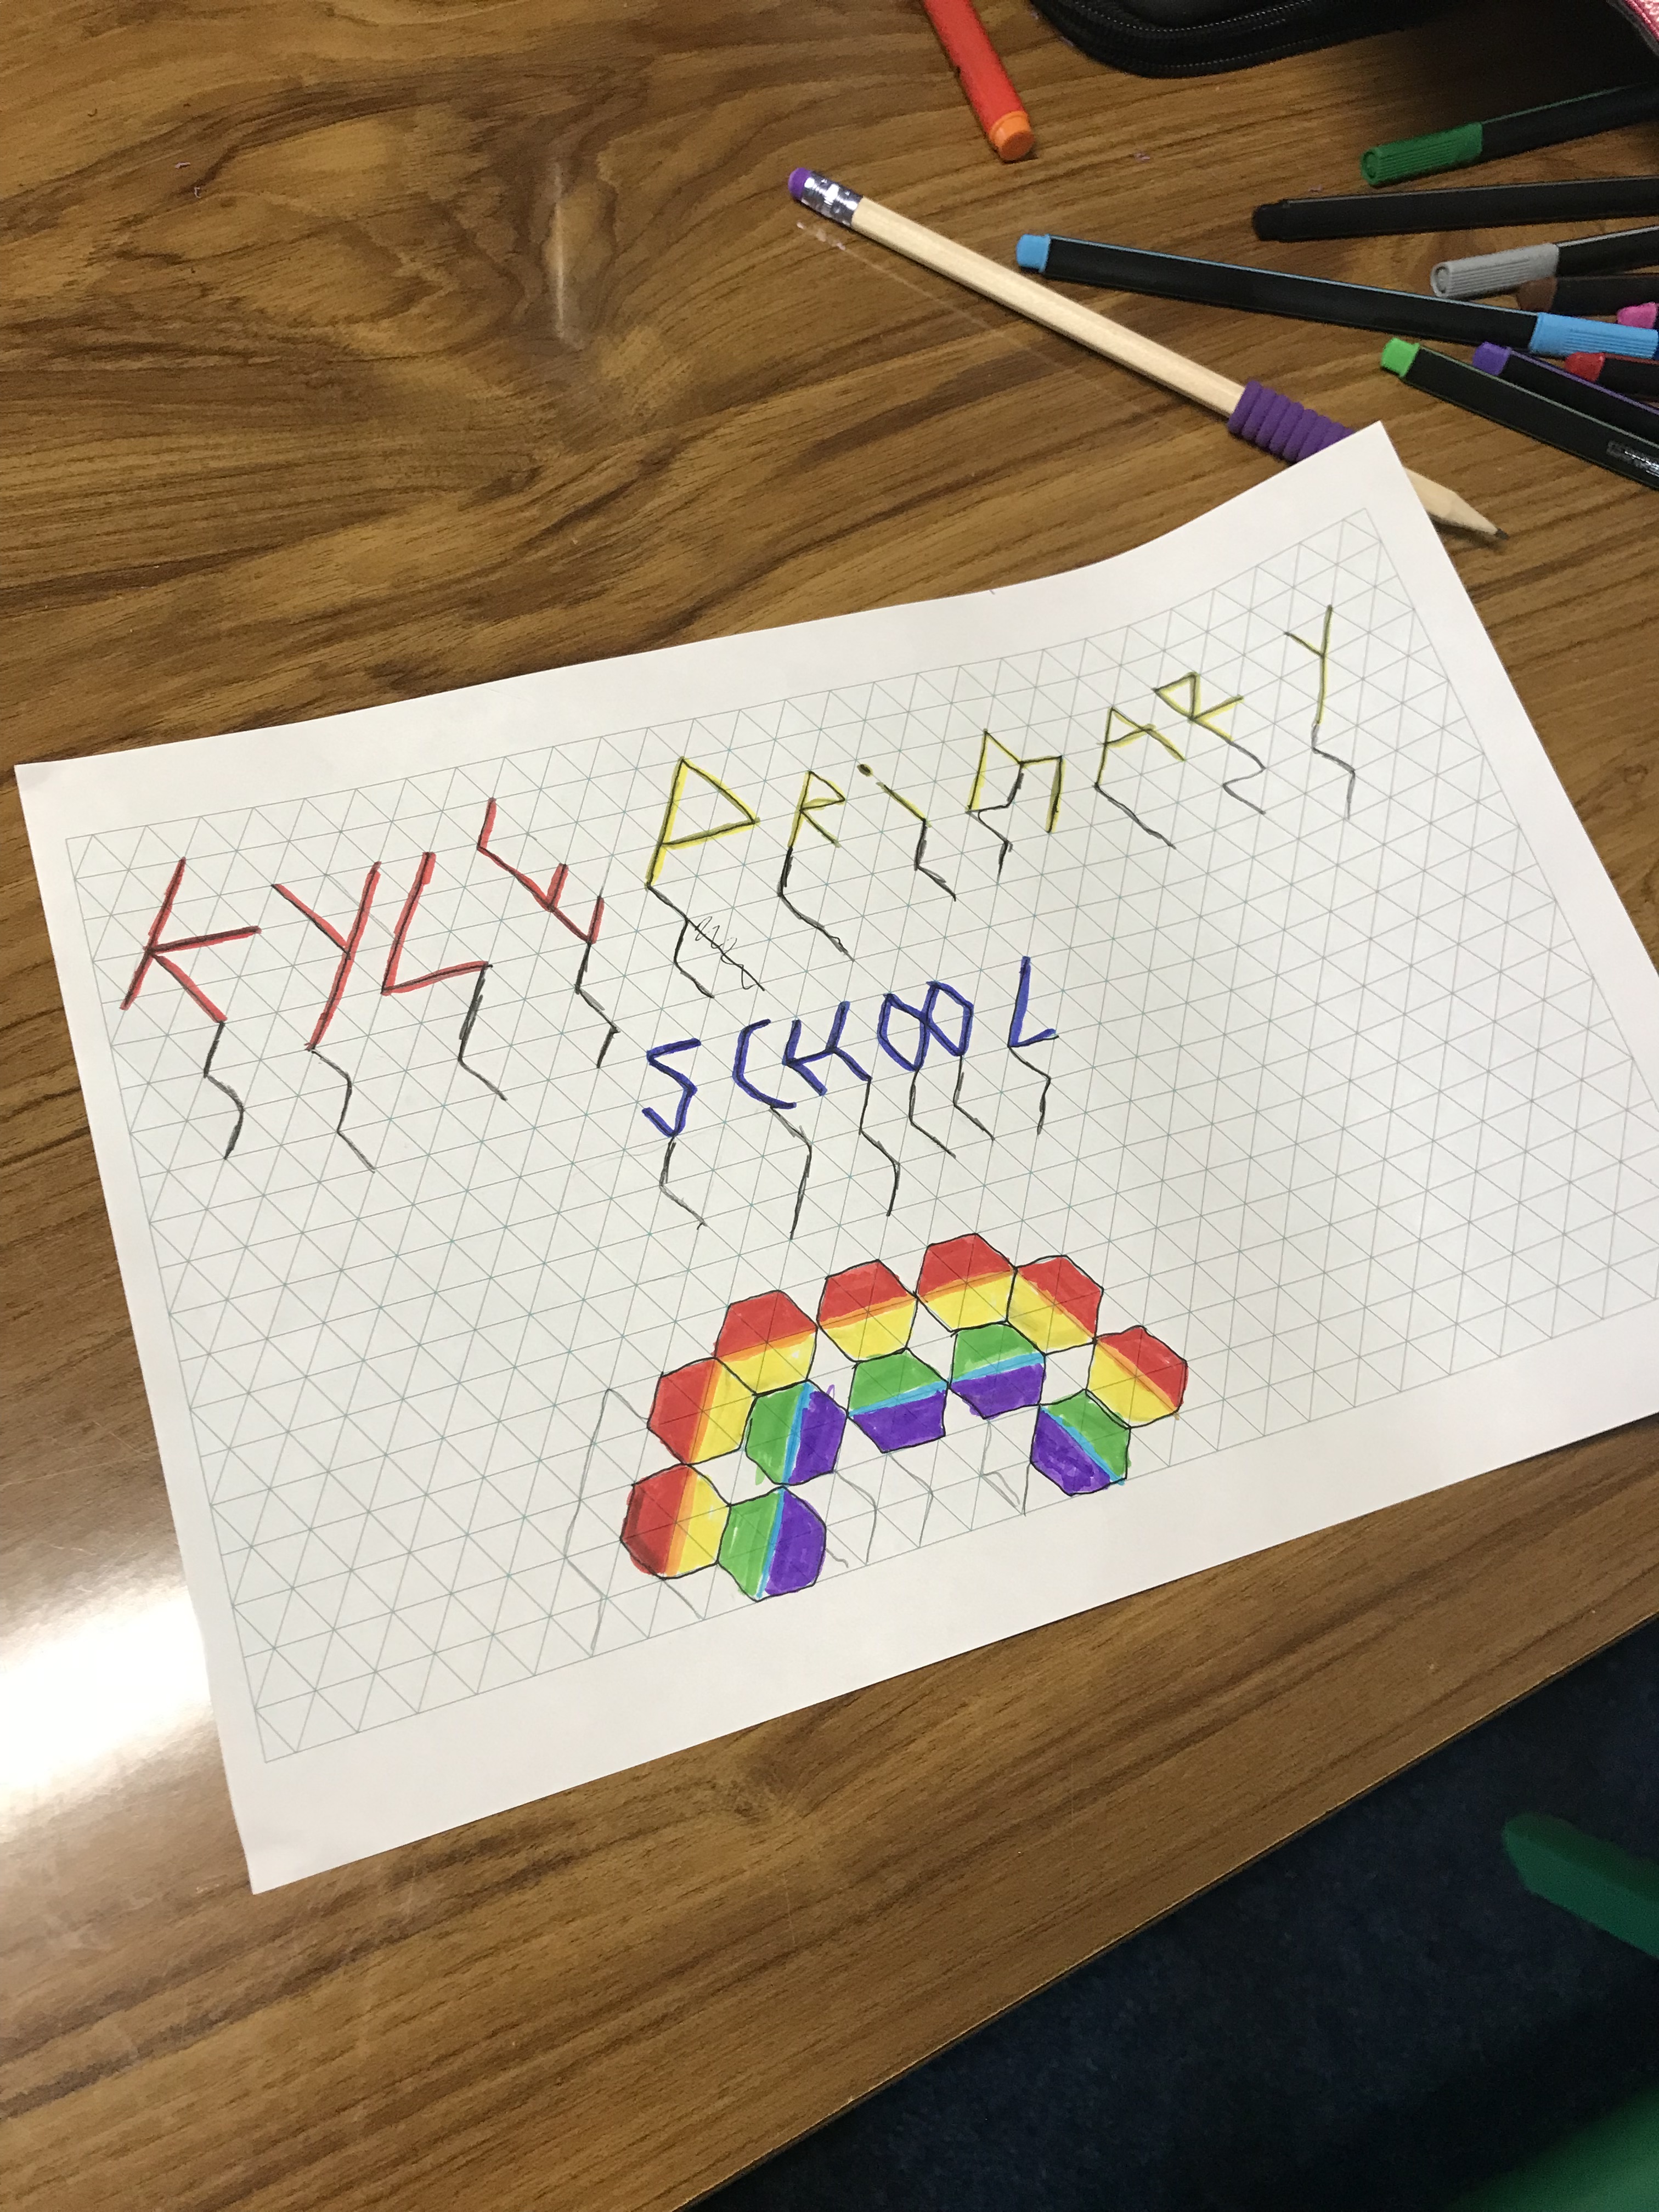 KYLE PRiMARY
SCHOOL